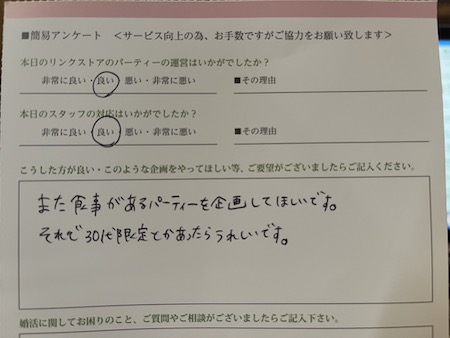 ■簡易アンケート <サービス向上の為、お手数ですがご協力をお願い致します>
本日のリンクストアのパーティーの運営はいかがでしたか？
非常に良い・良い・悪い・非常に悪い ■その理由
本日のスタッフの対応はいかがでしたか？
非常に良い・良い・悪い・非常に悪い ■その理由
こうした方が良い・このような企画をやってほしい等、ご要望がございましたらご記入ください。
また食事があるパーティーを企画してほしいです。
それで30代限定とかあったらうれしいです。
婚活に関してお困りのこと、ご質問やご相談がございましたらご記入下さい。